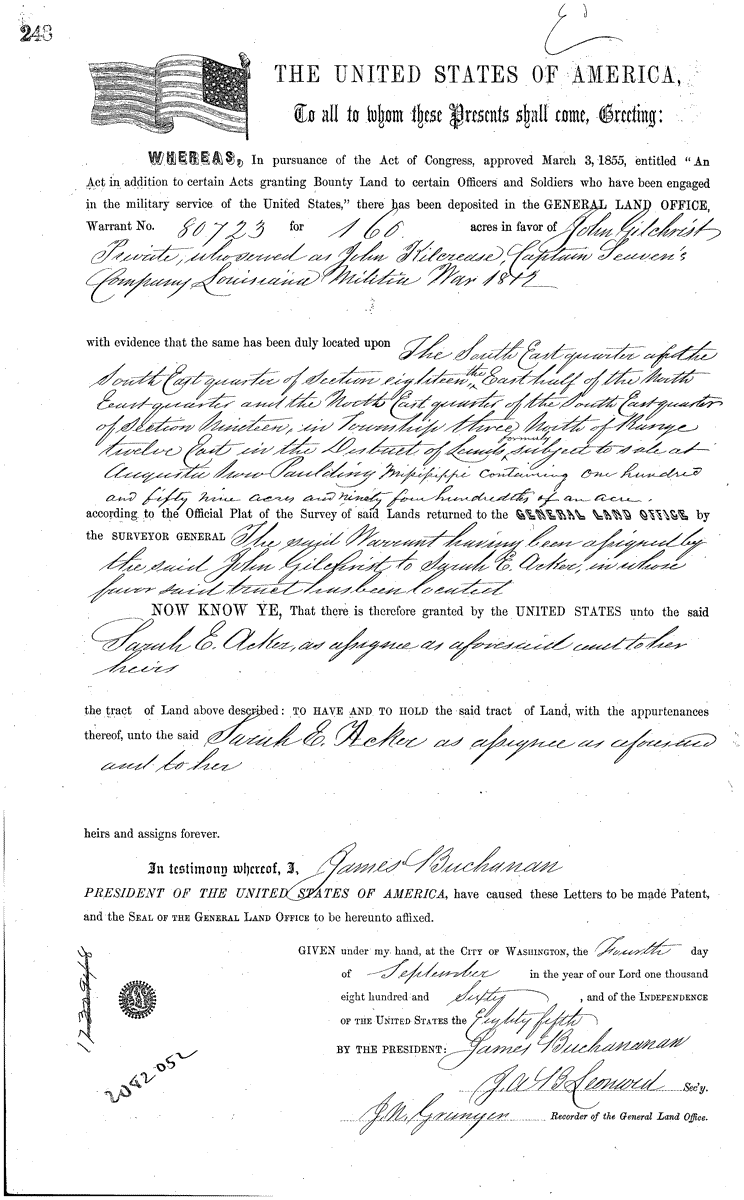 248
THE UNITED STATES OF AMERICA,
To all to whom these Presents shall come, Greeting:
WHEREAS, In pursuance of the Act of Congress, approved March 3, 1855, entitled "An
Act in addition to certain Acts granting Bounty Land to certain Officers and Soldiers who have been engaged
in the military service of the United States," there has been deposited in the GENERAL LAND OFFICE,
Warrant No. 80723 for 160 acres in favor of John Gilchrist
Private, who served as John Kilcrease, Captain Seaven's
Company Louisiana Militia War 1812
with evidence that the same has been duly located upon The South East quarter of the
South East quarter of Section eighteen the East half of the North
East quarter and the North East quarter of the South East quarter
of Section Nineteen, in Township three North of Range
twelve East in the District of Lands formerly subject to sale at
Augusta Now Paulding Mississippi containing one hundred
and fifty nine acres and ninety four hundredths of an acre.
according to the Official Plat of the Survey of said Lands returned to the GENERAL LAND OFFICE by
the SURVEYOR GENERAL The said Warrant having been assigned by
the said John Gilchrist to Sarah E. Acker, in whose
favor said tract has been located
NOW KNOW YE, That there is therefore granted by the UNITED STATES unto the said
Sarah E. Acker, as assignee as aforesaid and to her
heirs
the tract of Land above described: TO HAVE AND TO HOLD the said tract of Land, with the appurtenances
thereof, unto the said Sarah E. Acker as assignee as aforesaid
and to her
heirs and assigns forever.
In testimony whereof, I, James Buchanan
PRESIDENT OF THE UNITED STATES OF AMERICA, have caused these Letters to be made Patent,
and the SEAL OF THE GENERAL LAND OFFICE to be hereunto affixed.
GIVEN under my hand, at the CITY OF WASHINGTON, the Fourth day
of September in the year of our Lord one thousand
eight hundred and Sixty, and of the INDEPENDENCE
OF THE UNITED STATES the Eighty fifth
BY THE PRESIDENT: James Buchananan
J.A.B Leonard Sec'y.
J.N. Granger Recorder of the General Land Office.
2082-052